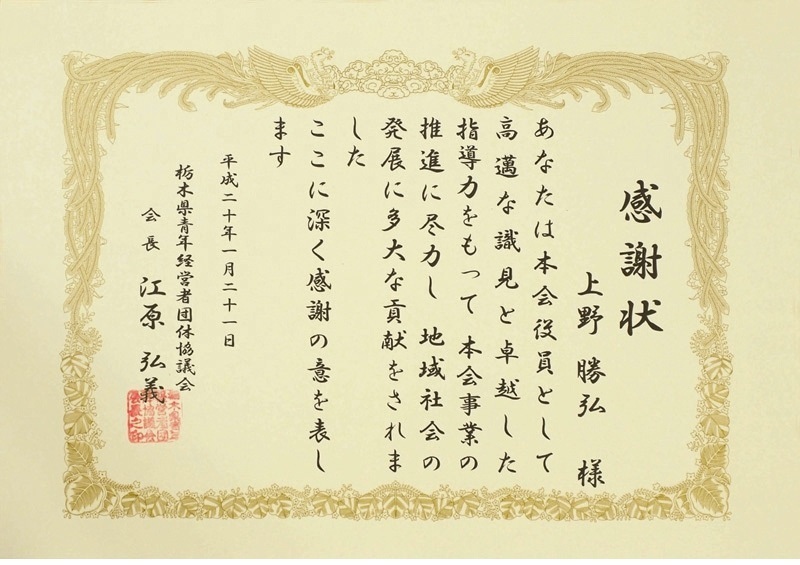 感謝状
上野 勝弘 様
あなたは本会役員として
高邁な識見と卓越した
指導力をもって 本会事業の
推進に尽力し 地域社会の
発展に多大な貢献をされま
した
ここに深く感謝の意を表し
ます
平成二十年一月二十一日
栃木県青年経営者団体協議会
会長 江原 弘義